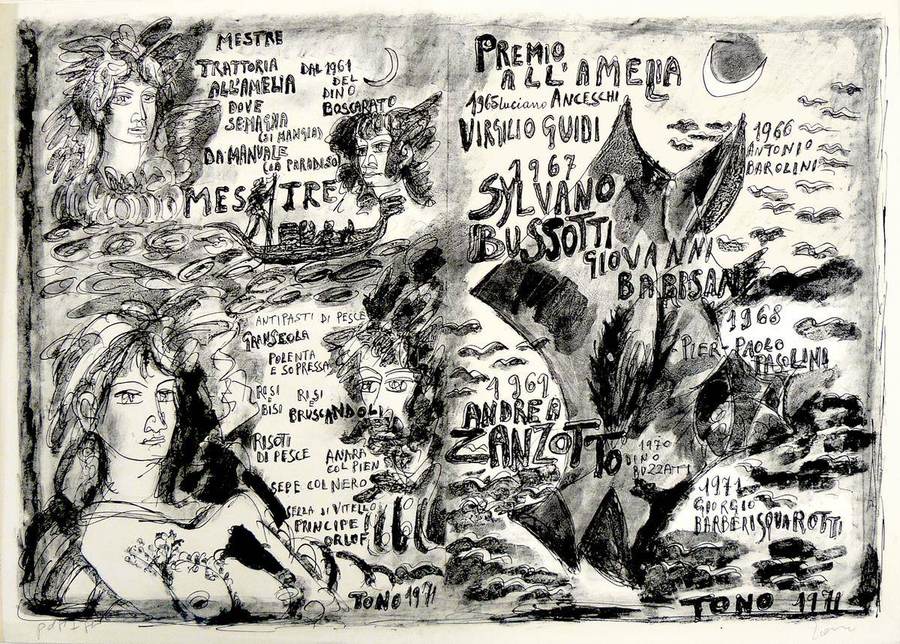 MESTRE
TRATTORIA
ALL'AMELIA
DOVE
SEMAGNA
(SI MANGIA)
DA MANUALE
(DA PARADISO)
DAL 1961
DEL
DINO
BOSCARATO
MESTRE
ANTIPASTI DI PESCE
GRANSEOLA
POLENTA
E SOPRESSA
RISI
E
BISI
RISI
E
BRUSCANDOLI
RISOTI
DI PESCE
ANARA
COL PIEN
SEPE COL NERO
SELLA DI VITELLO
PRINCIPE
ORLOF
TONO 1971
PREMIO
ALL'AMELIA
1965 LUCIANO ANCESCHI
VIRGILIO GUIDI
1966
ANTONIO
BAROLINI
1967
SYLVANO
BUSSOTTI
GIOVANNI
BARBISAN
1968
PIER-PAOLO
PASOLINI
1969
ANDREA
ZANZOTTO
1970
DINO
BUZZATI
1971
GIORGIO
BARBERI SQUAROTTI
TONO 1971